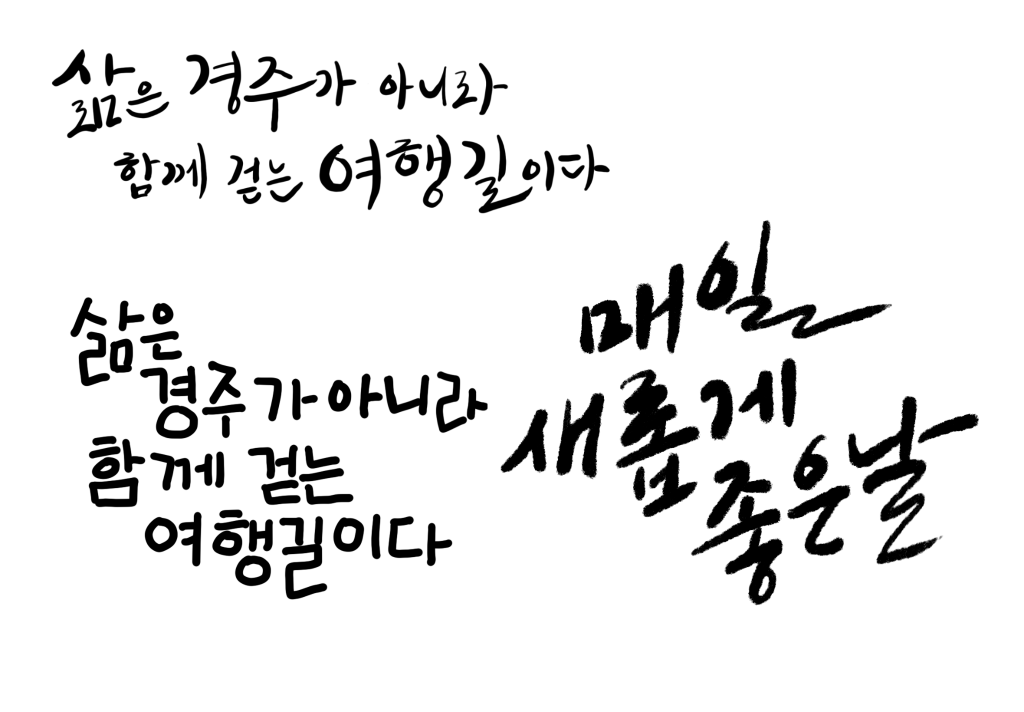 삶은 경주가 아니라
함께 걷는 여행길이다
삶은
경주가아니라
함께 걷는
여행길이다
매일
새롭게
좋은날